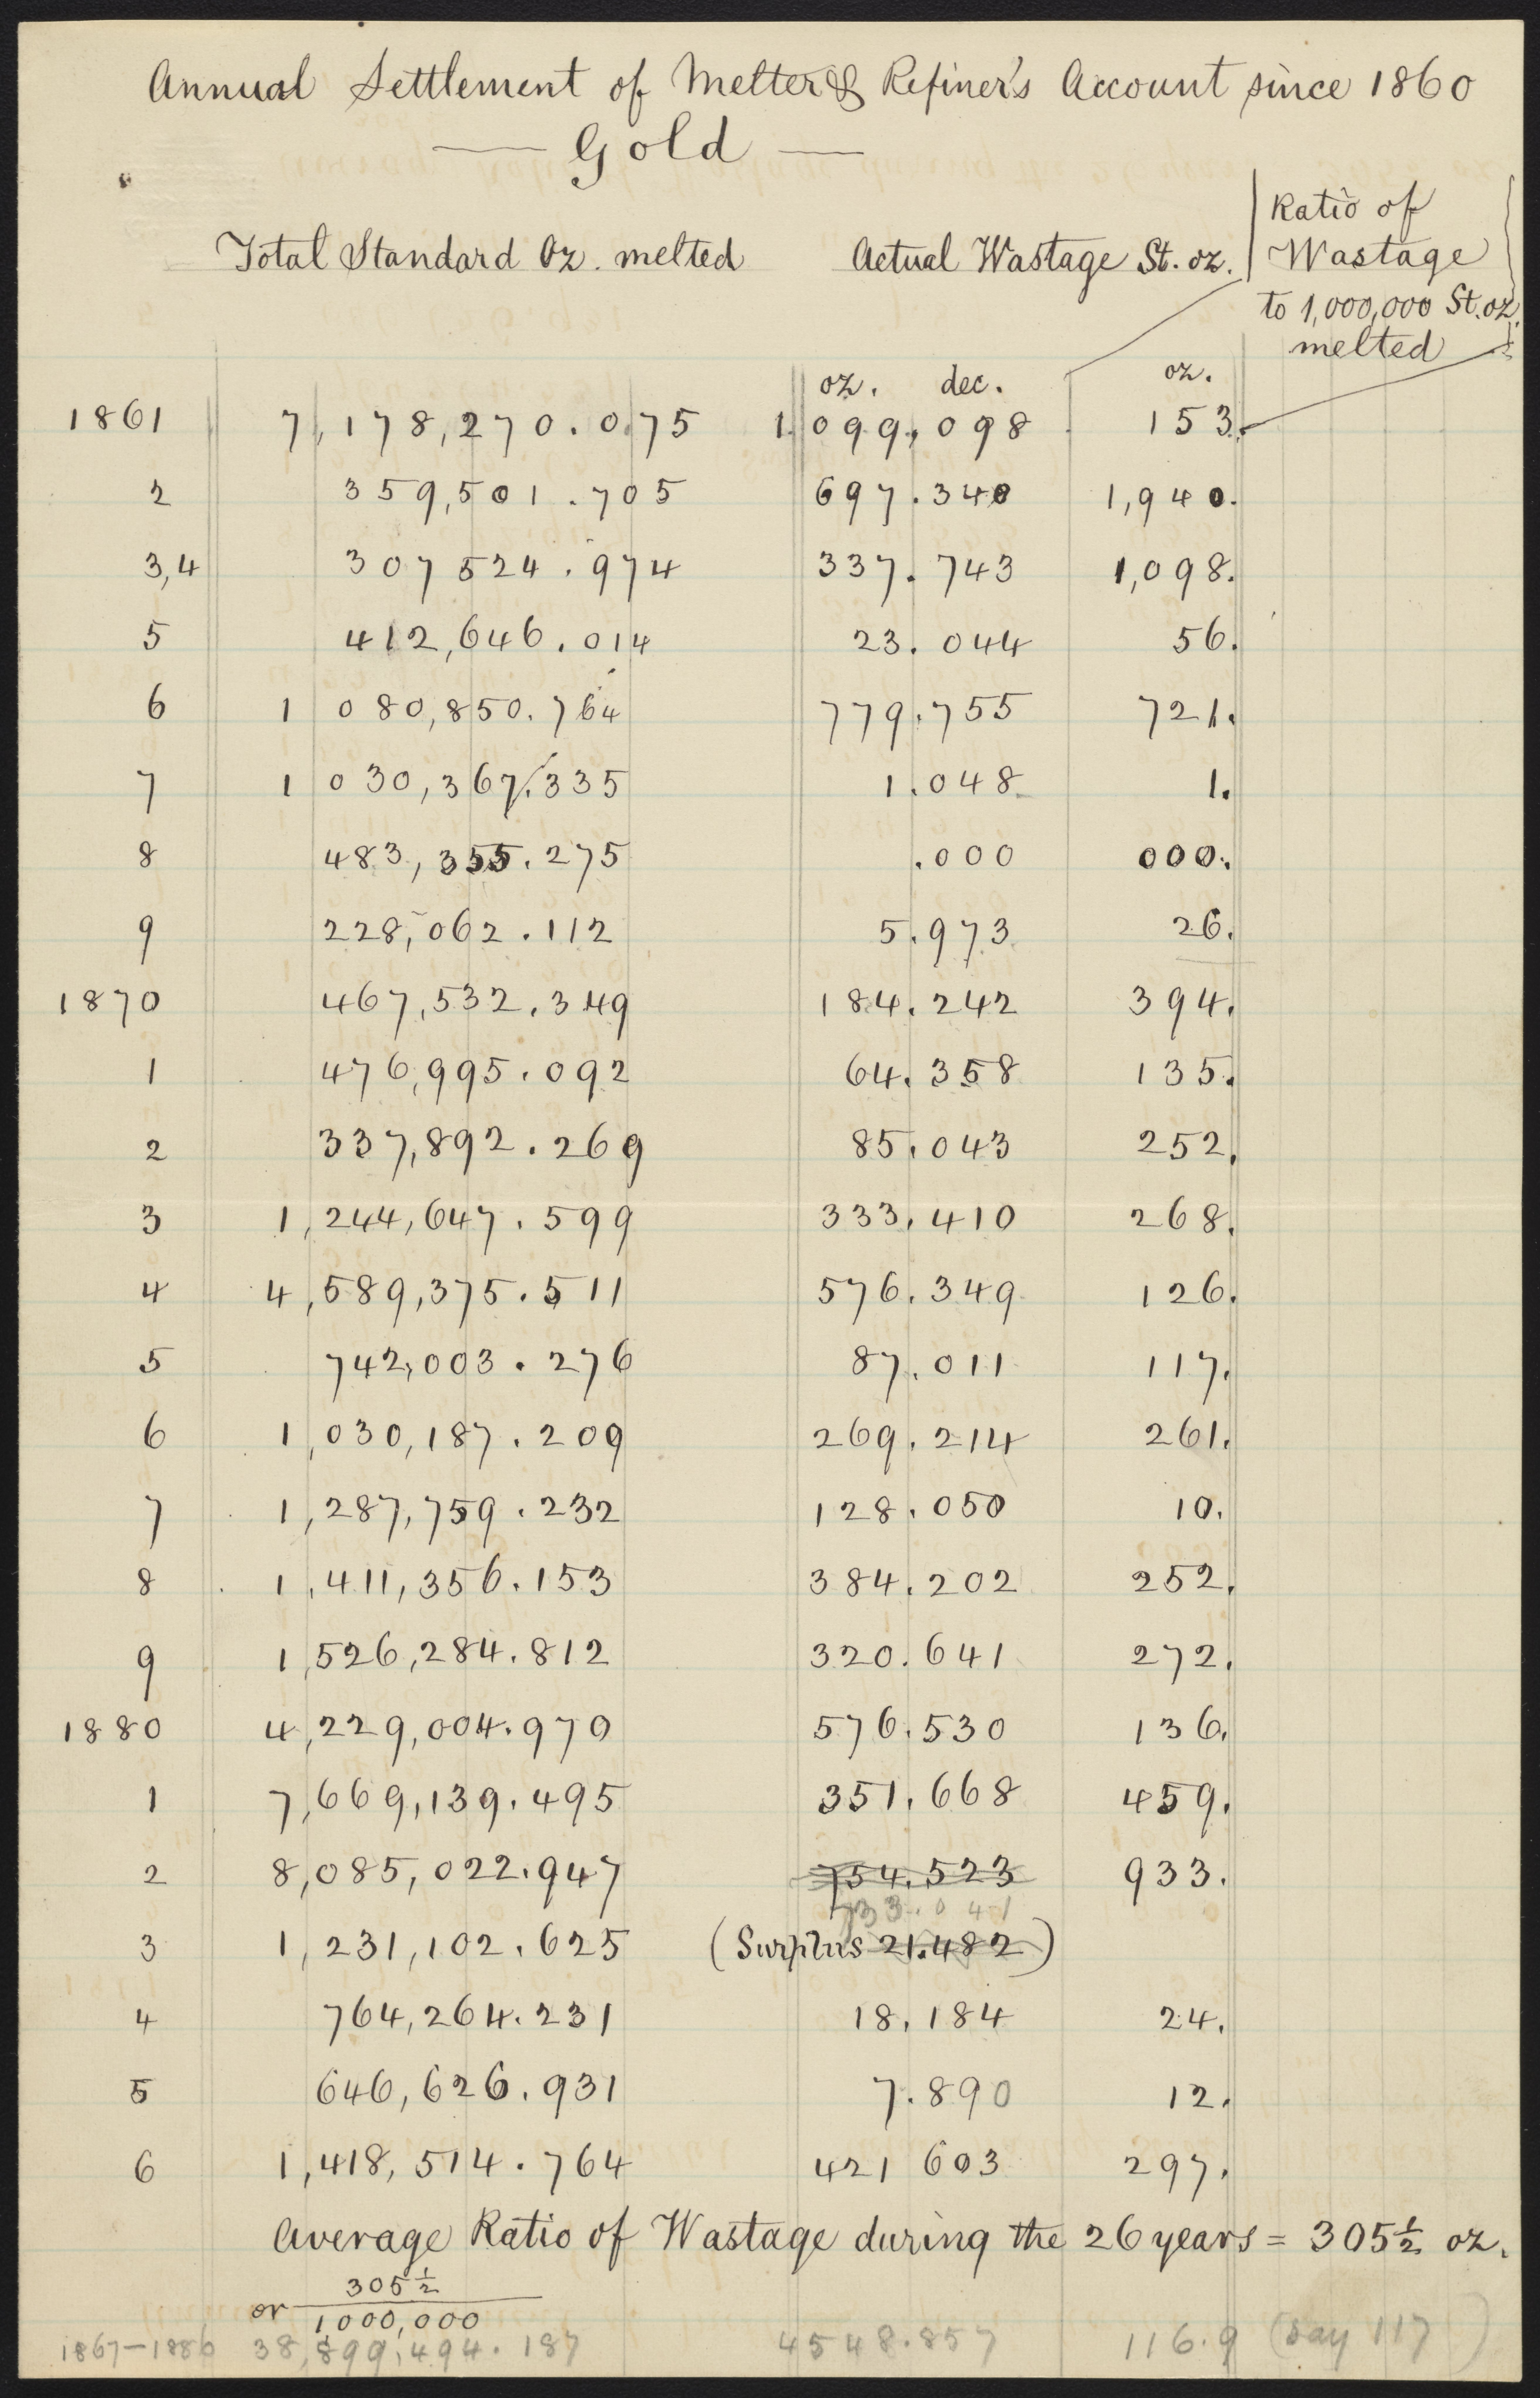 Annual Settlement of Melter & Refiner's Account since 1860
Gold
Total Standard Oz. melted Actual Wastage St. oz. Ratio of Wastage to 1,000,000 St. oz. melted
oz. dec. oz.
1861 7,178,270.075 1.099.098 153.
2 359,501.705 697.340 1,940.
3,4 307 524.974 337.743 1,098.
5 412,646.014 23.044 56.
6 1 080,850.764 779.755 721.
7 1 030,367.335 1.048 1.
8 483,355.275 .000 000.
9 228,062.112 5.973 26.
1870 467,532.349 184.242 394.
1 476,995.092 64.358 135.
2 337,892.269 85.043 252.
3 1,244,647.599 333.410 268.
4 4,589,375.511 576.349 126.
5 742,003.276 87.011 117.
6 1,030,187.209 269.214 261.
7 1,287,759.232 128.050 10.
8 1,411,356.153 384.202 252.
9 1,526,284.812 320.641 272.
1880 4,229,004.970 576.530 136.
1 7,669,139.495 351.668 459.
2 8,085,022.947 754.523 933.
733.041
3 1,231,102.625 (Surplus 21.482)
4 764,264.231 18.184 24.
5 646,626.931 7.890 12.
6 1,418,514.764 421 603 297.
Average Ratio of Wastage during the 26 years = 305½ oz.
or 305½
1000,000
1867-1886 38,899,494.187 4548.857 116.9 (say 117)